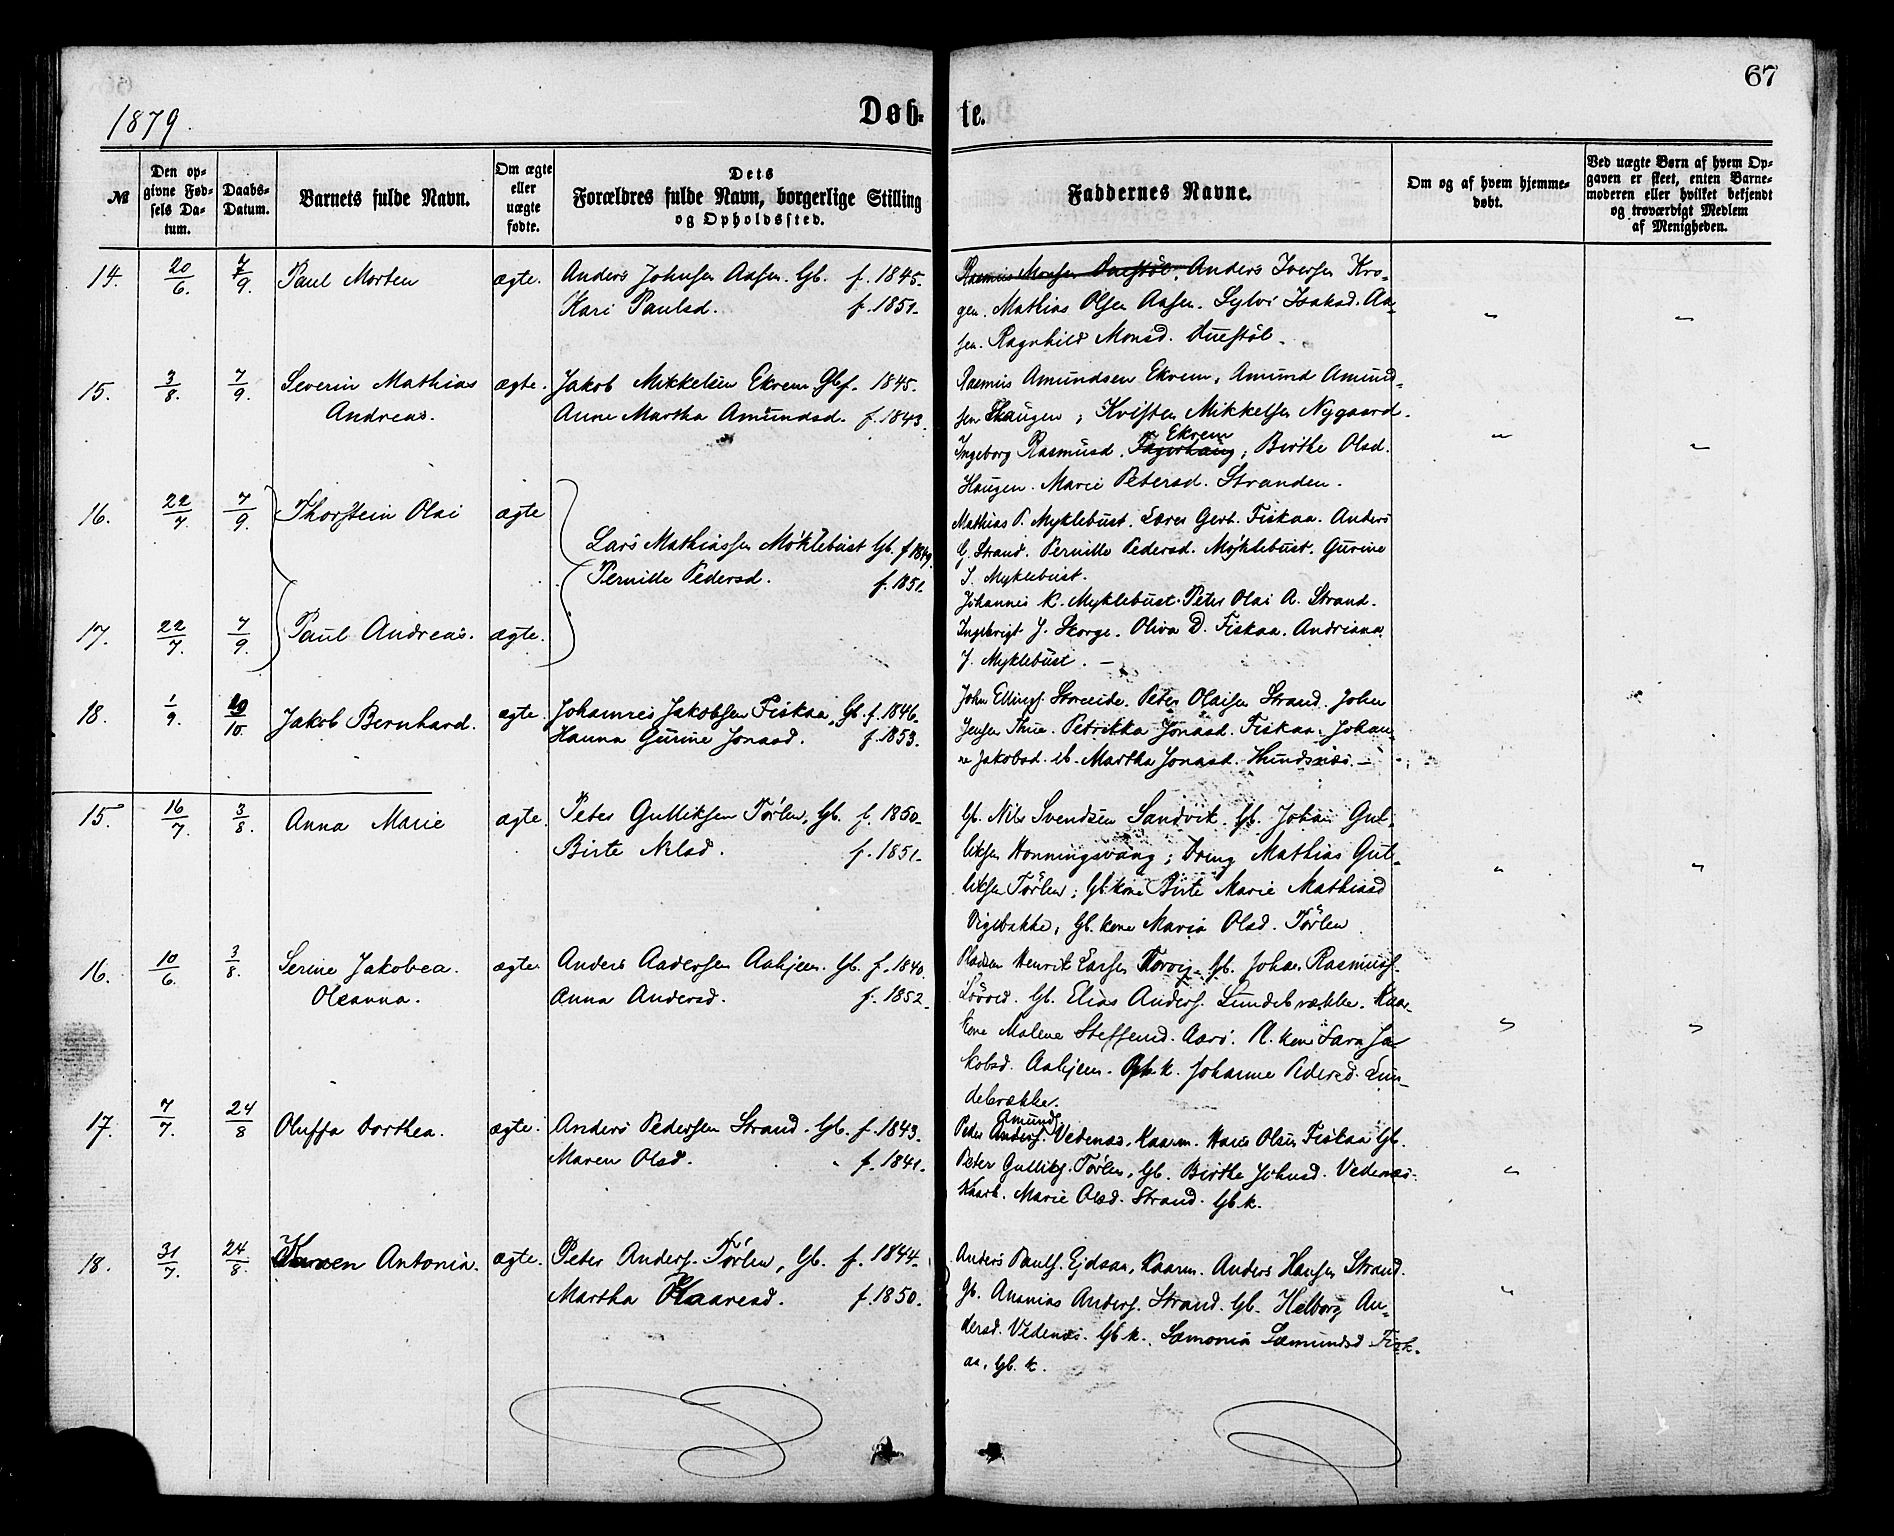 67
1879.
Døb-
te.
№
Den op-
givne Fød-
sels Da-
tum.
Daabs-
Datum.
Barnets fulde Navn.
Om ægte
eller
uægte
fødte.
Dets
Forældres fulde Navn, borgerlige Stilling
og Opholdssted.
Faddernes Navne.
Om og af hvem hjemme-
døbt.
Ved uægte Børn af hvem Op-
gaven er skeet, enten Barne-
moderen eller hvilket bekjendt
og troværdigt Medlem
af Menigheden.
14. 20/6. 7/9. Paul Morten ægte. Anders Johnsen Aasen. Gb. f. 1845.
Kari Paulsd. f. 1851.
Rasmus Monsen Duestøl. Anders Iversen Kro-
gen. Mathias Olsen Aasen. Sylvi Isaksd. Aa-
sen. Ragnhild Monsd. Duestøl.
15. 3/8. 7/9. Severin Mathias ægte. Jakob Mikkelsen Ekrem Gb. f. 1845.
Andreas. Anne Martha Amundsd. f. 1843.
Rasmus Amundsen Ekrem, Amund Amund-
sen Haugen, Kristen Mikkelsen Nygaard.
Ekrem
Ingeborg Rasmusd. Fagerhaug, Birthe Olsd.
Haugen. Marie Petersd. Stranden.
16. 22/7. 7/9. Thorstein Olai ægte
Lars Mathiassen Møklebust Gb. f. 1849.
Pernille Pedersd. f. 1851.
Mathias P. Myklebust. Lærer Gert. Fiskaa. Anders
G. Strand. Pernille Pedersd. Møklebust. Gurine
J. Myklebust.
17. 22/7. 7/9. Paul Andreas. ægte.
Johannes K. Myklebust. Peter Olai A. Strand.
Ingebrigt J. Skorge. Oliva D. Fiskaa. Andriana
J. Myklebust. —
18. 1/9. 10. Jakob Bernhard. ægte. Johannes Jakobsen Fiskaa, Gb. f. 1846.
Hanna Gurine Jonasd. f. 1853.
John Ellings. Storeide. Peter Olaisen Strand. John
Jensen Thue. Petrikka Jonasd. Fiskaa. Johan-
ne Jakobsd. ib. Martha Jonasd. Hundsnæs. —
15. 16/7. 3/8. Anna Marie ægte. Peter Gulliksen Tørlen, Gb. f. 1850.
Birte Nilsd. f. 1851.
Gb. Nils Svendsen Sandvik. Gb. Johan Gul-
liksen Honningsvaag; Dreng Mathias Gul-
liksen Tørlen; Gb. kone Birte Marie Mathiasd
Vigebakke, Gb. kone Maria Olsd. Tørlen.
16. 10/6. 3/8. Serine Jakobea. ægte. Anders Andersen Aahjem. Gb. f. 1840.
Oleanna. Anna Andersd. f. 1852.
Pladsm Henrik Larsen Gb. Johan Rasmuss.
Gb. Elias Anders. Lundebrække. Kaar-
kone Malene Steffensd. Aarø. Pl. kone Sara Ja-
kobsd. Aahjem. Gb. k. Johanne Pedersd. Lun-
debrække.
17. 7/7. 24/8 Oluffa Dorthea. ægte. Anders Pedersen Strand. Gb. f. 1843.
Maren Olsd. f. 1841.
Amunds.
Peder Anders. Vedenæs, Kaarm. Hans Olsen Fiskaa Gb.
Peter Gulliks. Tørlen, Gb. Birthe Johnsd. Vedenæs.
Kaark. Marie Olsd. Strand. Gb. k.
18. 31/7. 24/8. Karen Antonia. ægte. Peter Anders. Tørlen, Gb. f. 1844.
Martha Kaaresd. f. 1850.
Anders Pauls. Ejdsaa, Kaarm. Anders Hansen Strand.
Gb. Ananias Anders. Strand. Gb. Helborg An-
dersd. Vedenæs. Gb. k. Samonia Sæmundsd. Fisk-
aa, Gb. k.